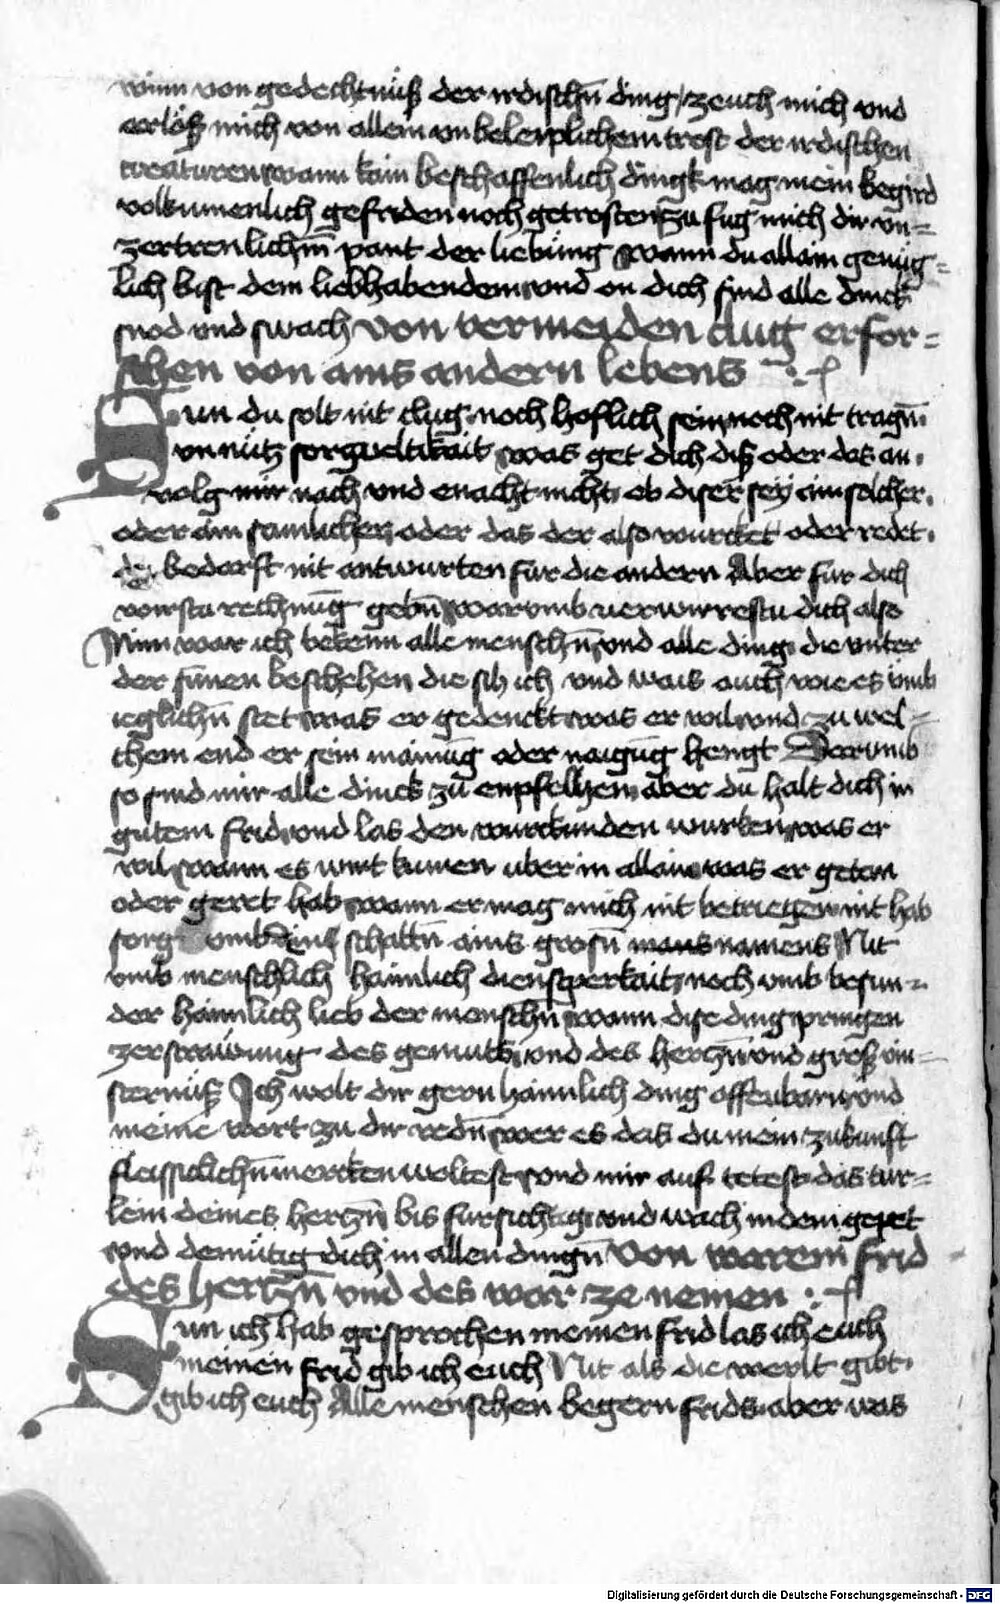 winn von gedechtnüß der irdischñ ding / zeuch mich vnd
erlöß mich von allem vnbeleiplichem trost der irdischen
creaturen wann kain beschaffenlich dingk mag mein begird
volkumenlich gefriden noch getrosten zu fug mich dir vn=
zertrenlichm̄ pant der liebung wann du allain genüg=
lich bist dem liebhabenden vnd on dich sind alle dinck
snod vnd swach von vermeiden clug erfor=
schen von ains andern lebens
Sun du solt nit clug noch hoflich sein noch nit tragñ
vnnütz sorgveltikait was get dich diß oder das an
volg mir nach vnd enacht nicht ob diser sey ein solcher
oder ain samlicher oder das der also wurcket oder redet
du bedarft nit antwurten fur die andern Aber fur dich
wirstu rechnūg gebn̄ warvmb verwurrestu dich also
Nim war ich bekenn alle menschn̄ vnd alle ding die vnter
der sunnen beschehen die sih ich vnd wais auch wie es vmb
ieglichn̄ stet was er gedenckt was er wil vnd zu wel=
chem end er sein mainūg oder naigūg hengt Darvmb
so sind mir alle dinck zu enpfelhen aber du halt dich in
gutem frid vnd las den wurckunden wurken was er
wil wann es wirt kumen uber in allain was er getan
oder geret hab wann er mag mich nit betriegen nit hab
sorg vmb schattn̄ ains grosn̄ namens Nit
vmb menschlich haimlich dienstperkait noch vmb besun=
der haimlich lieb der menschn̄ wann dise ding pringen
zerstraiüung des gemuts vnd des hertzn̄ vnd groß vin=
sternüß Ich wolt dir gern haimlich ding offenbarn vnd
meine wort zu dir redn̄ wer es das du mein zukunft
fleissiclichn̄ mercken woltest vnd mir auf tetest das tür=
lein deines hertzn̄ bis fursichtig vnd wach in dem gepet
vnd demütig dich in allen dingn̄ Von warem frid
des hertzn̄ vnd des war ze nemen
Sun ich hab gesprochen meinen frid las ich euch
meinen frid gib ich euch Nit als die werlt gibt
gib ich euch Alle menschen begern frids aber was
Digitalisierung gefördert durch die Deutsche Forschungsgemeinschaft - DFG